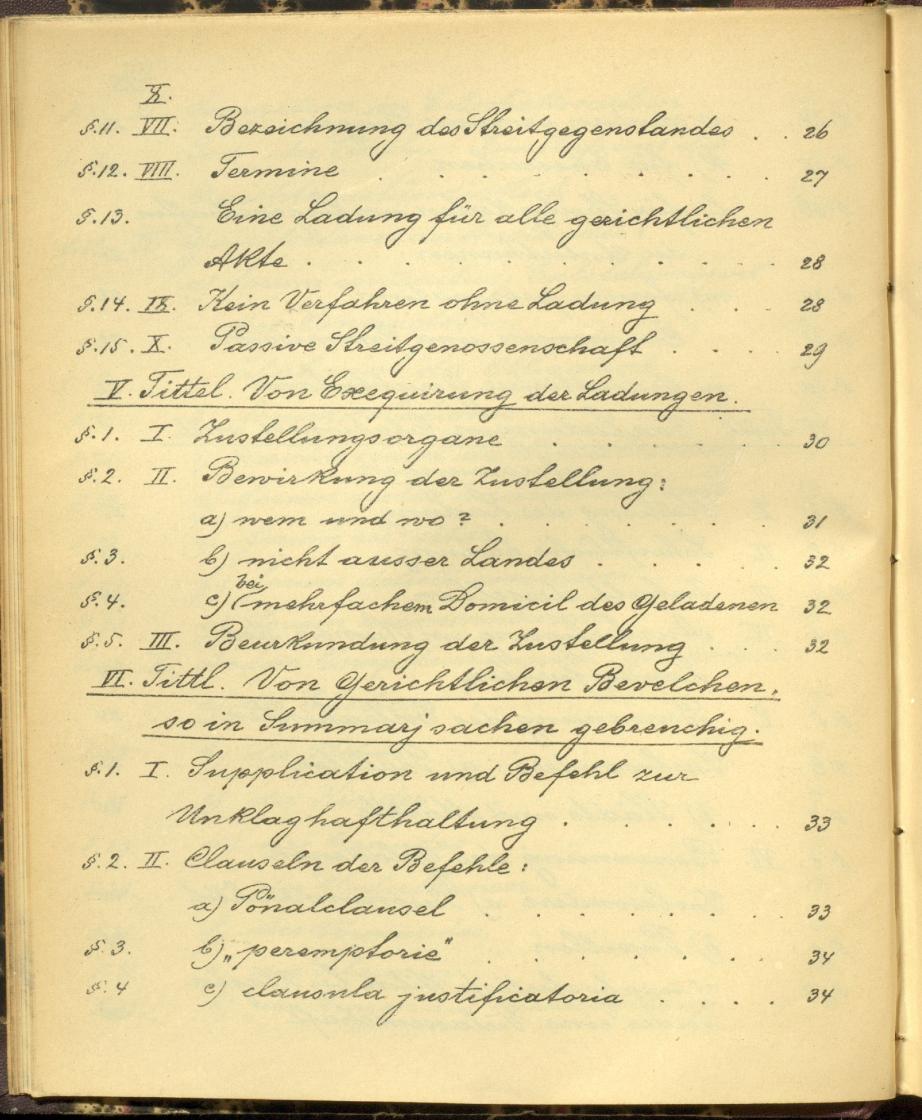 X.
§.11. VII. Bezeichnung des Streitgegenstandes . . 26
§.12. VIII. Termine . . . . . . . . . 27
§.13. Eine Ladung für alle gerichtlichen
Akte . . . . . . . . . . 28
§.14. IX. Kein Verfahren ohne Ladung . . . 28
§.15. X. Passive Streitgenossenschaft . . . . 29
V. Tittel. Von Exequirung der Ladungen.
§.1. I. Zustellungsorgane . . . . . . 30
§.2. II. Bewirkung der Zustellung:
a) wem und wo? . . . . . . . 31
§.3. b) nicht ausser Landes . . . . . 32
bei
§.4. c) (mehrfachem Domicil des Geladenen 32
§.5. III. Beurkundung der Zustellung . . . 32
VI. Tittl. Von Gerichtlichen Bevelchen,
so in Summarj sachen gebreuchig.
§.1. I. Supplication und Befehl zur
Unklaghafthaltung . . . . . . 33
§.2. II. Clauseln der Befehle:
a) Pönalclausel . . . . . . . 33
§.3. b) „peremptorie“ . . . . . . . 34
§.4 c) clausula justificatoria . . . . 34